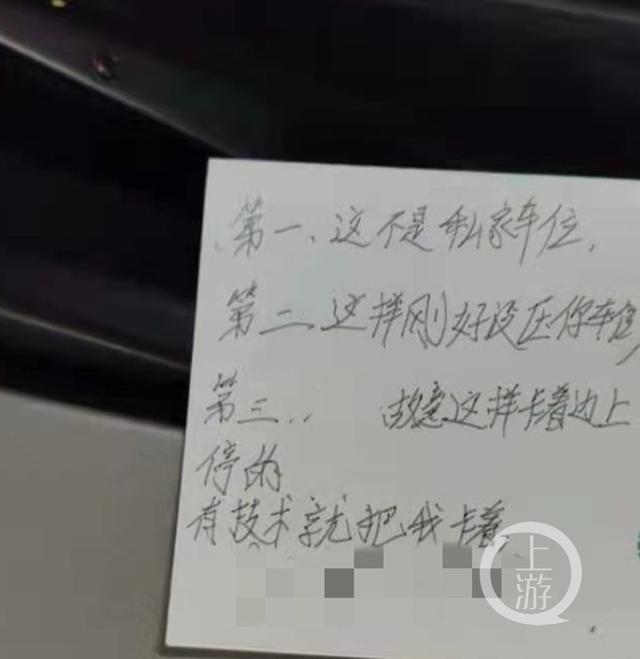 第一、这不是私家车位,
第二、这样刚好没压你车位,
第三.. 故意这样卡着边上
停的
有技术就把我卡着
上游